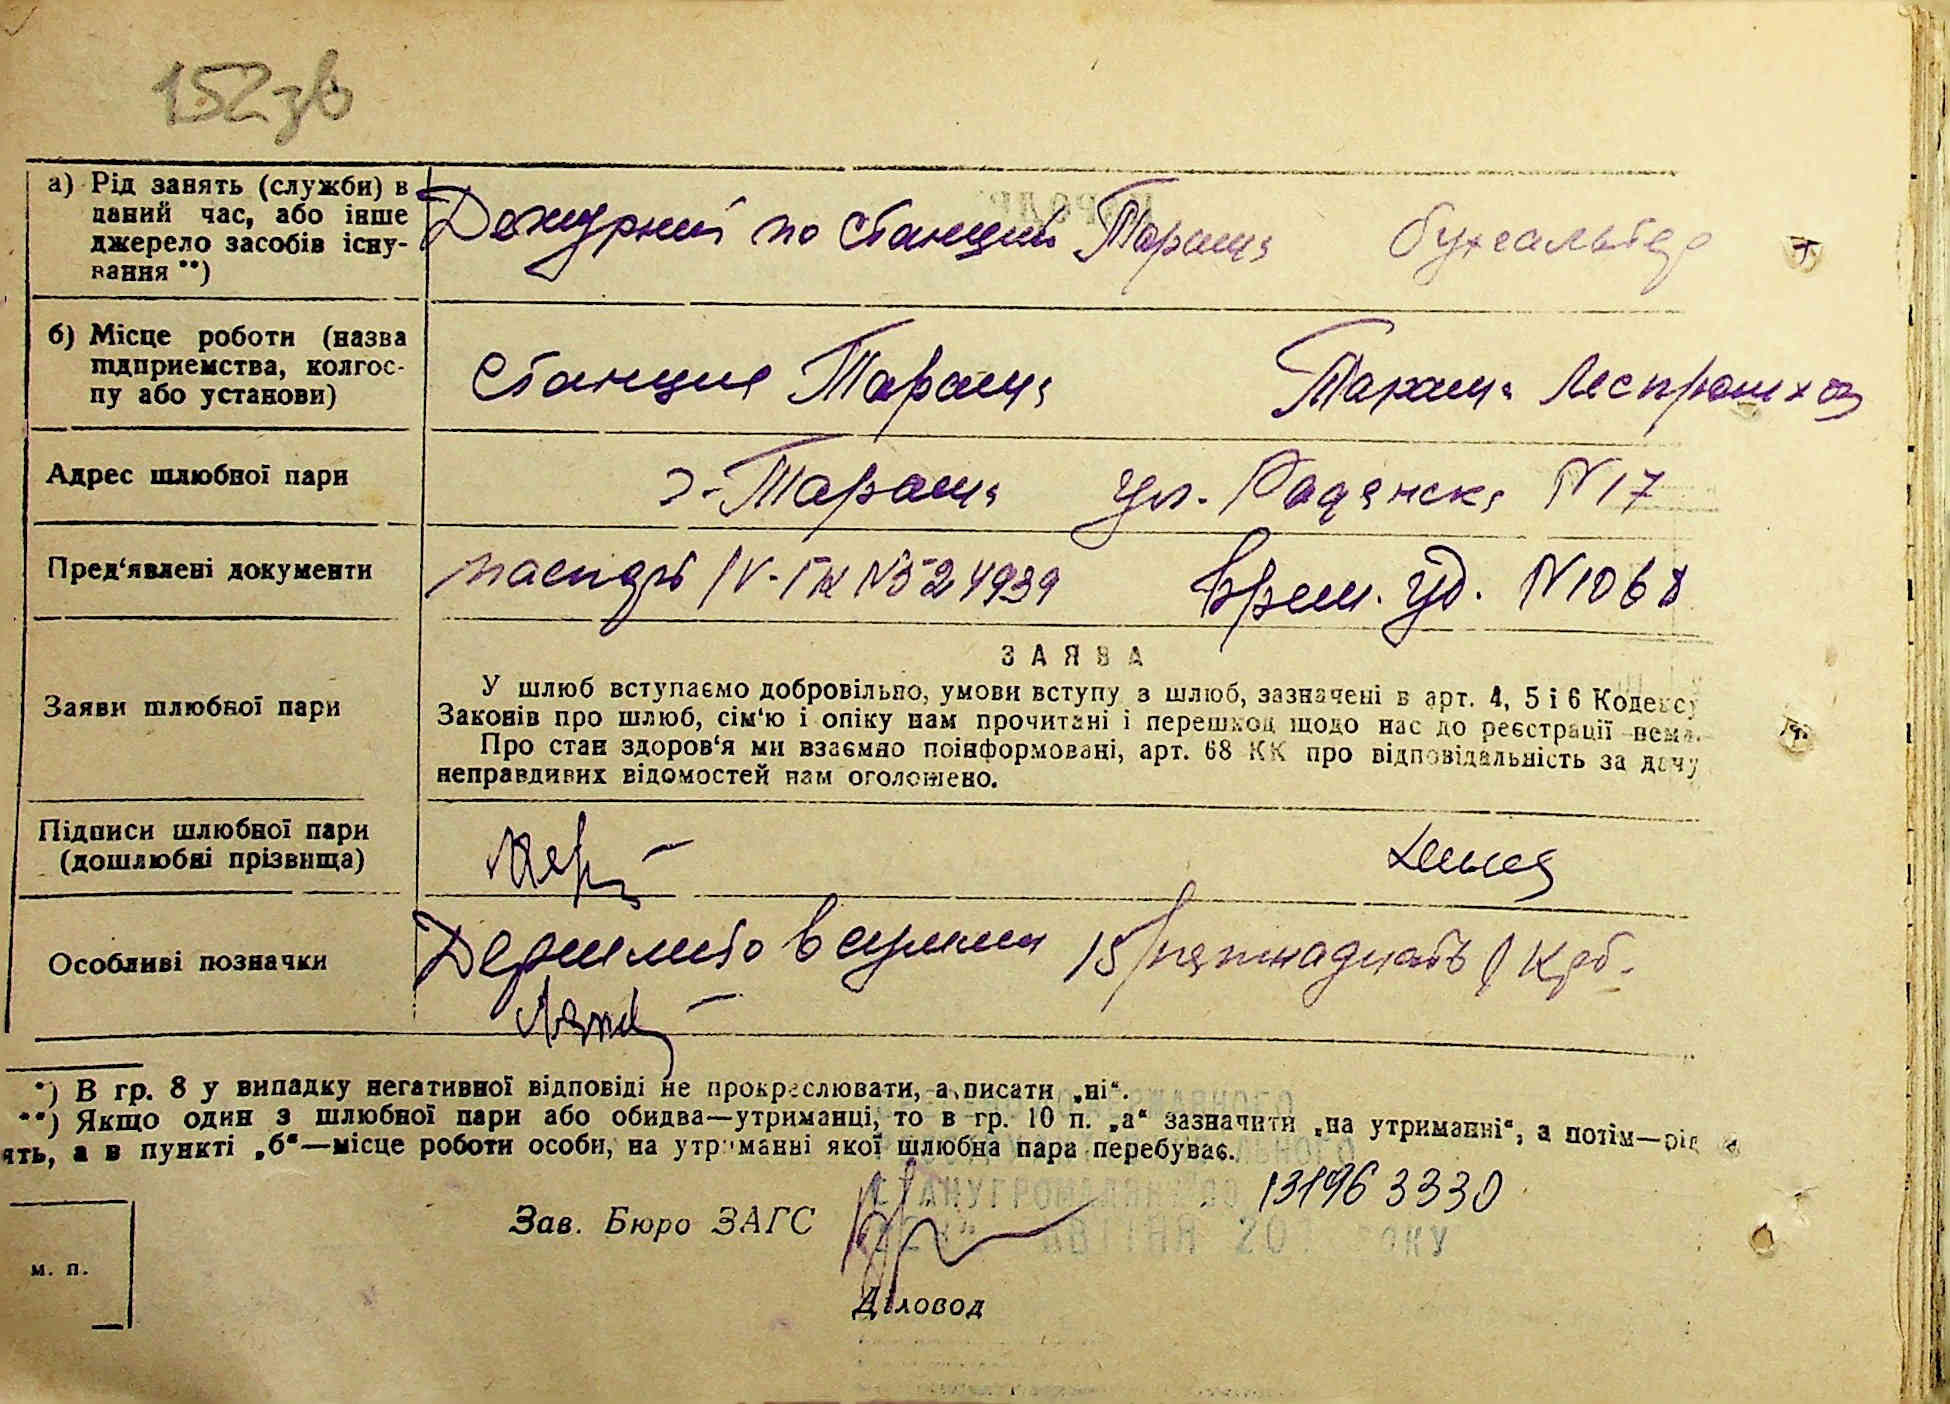 152зв
а) Рід занять (служби) в даний час, або інше джерело засобів існування **)
Дежурний по станции Тараща бухгалтер
б) Місце роботи (назва підприємства, колгоспу або установи)
Станция Тараща Тараща Леспромхоз
Адрес шлюбної пари
г. Тараща ул. Радянска N 17
Пред‘явлені документи
паспорт N 524939 Врем. уд. N 1068
ЗАЯВА
Заяви шлюбної пари
У шлюб вступаємо добровільно, умови вступу з шлюб, зазначені в арт. 4, 5 і 6 Кодексу
Законів про шлюб, сім‘ю і опіку нам прочитані і перешкод щодо нас до реєстрації нема.
Про стан здоров‘я ми взаємно поінформовані, арт. 68 КК про відповідальність за дачу
неправдивих відомостей нам оголошено.
Підписи шлюбної пари
(дошлюбні прізвища)
Особливі позначки
15 (пятнадцать) крб.
*) В гр. 8 у випадку негативної відповіді не прокреслювати, а писати „ні“.
**) Якщо один з шлюбної пари або обидва—утриманці, то в гр. 10 п. „а“ зазначити „на утриманні“, а потім—рід
ять, а в пункті „б“—місце роботи особи, на утриманні якої шлюбна пара перебуває.
Зав. Бюро ЗАГС
м. п.
Діловод